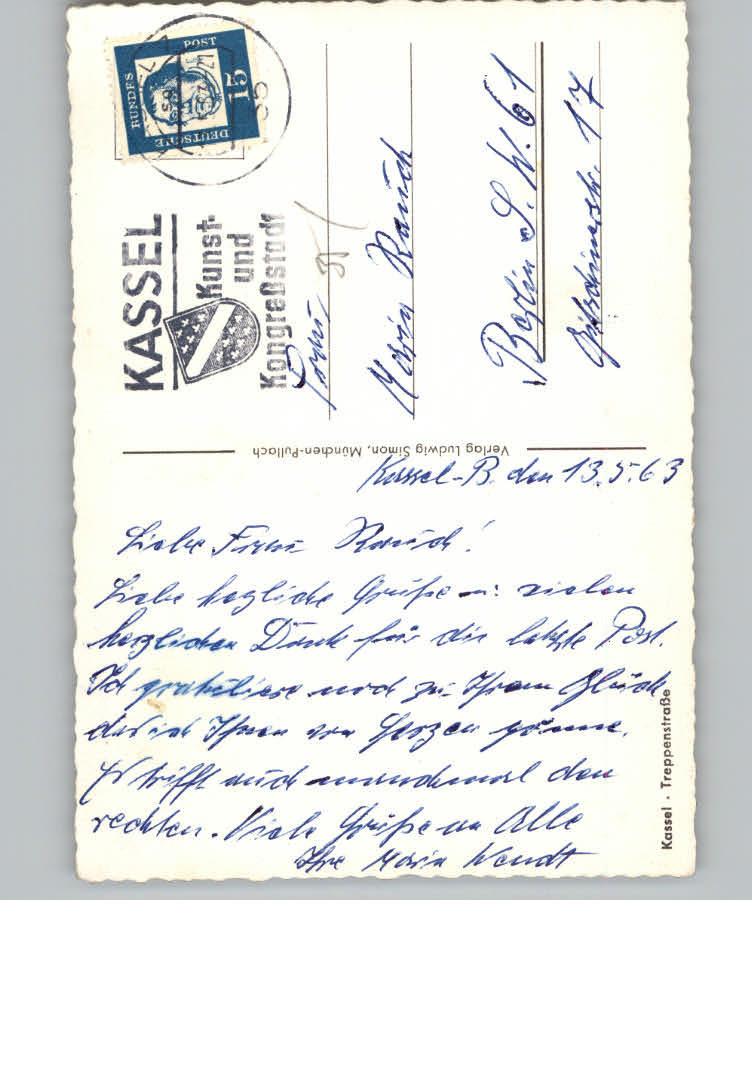 DEUTSCHE
BUNDES
POST
15
KASSEL
Kunst-
und
Kongreßstadt
Frau
Maria Rauch
Berlin S.W. 61
17
Verlag Ludwig Simon, München-Pullach
Kassel-B. den 13.5.63
Liebe Frau Rauch!
Liebe herzliche Grüße u. vielen
herzlichen Dank für die letzte Post.
Ich gratuliere noch zu Ihrem Glück
das ich Ihnen von Herzen gönne.
Es trifft auch manchmal den
rechten. Viele Grüße an Alle
Ihre Maria Wendt
Kassel · Treppenstraße